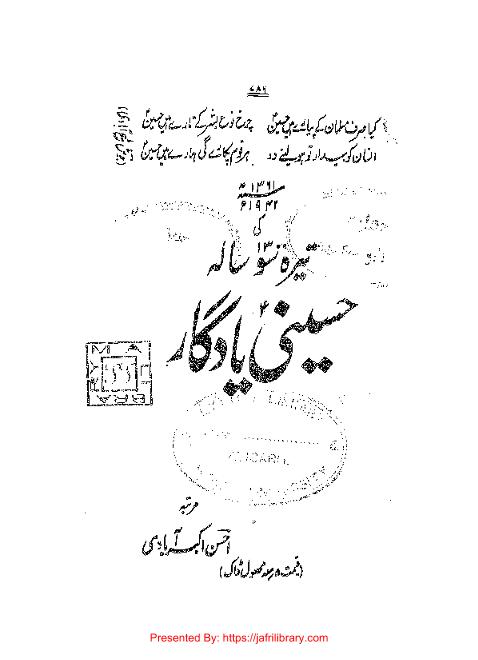 ۷۸۶
کیا صرف مسلمان کے پیارے ہیں حسینؑ چرخِ نوعِ بشر کے تارے ہیں حسینؑ
انسان کو بیدار تو ہو لینے دو ہر قوم پکارے گی ہمارے ہیں حسینؑ
۱۳۶۱ھ
۱۹۴۲ء
کی
تیرہ سو ۱۳ سالہ
حسینی یادگار
مرتبہ
احسن اکبرآبادی
(قیمت ۵ر مع محصول ڈاک)
Presented By: https://jafrilibrary.com